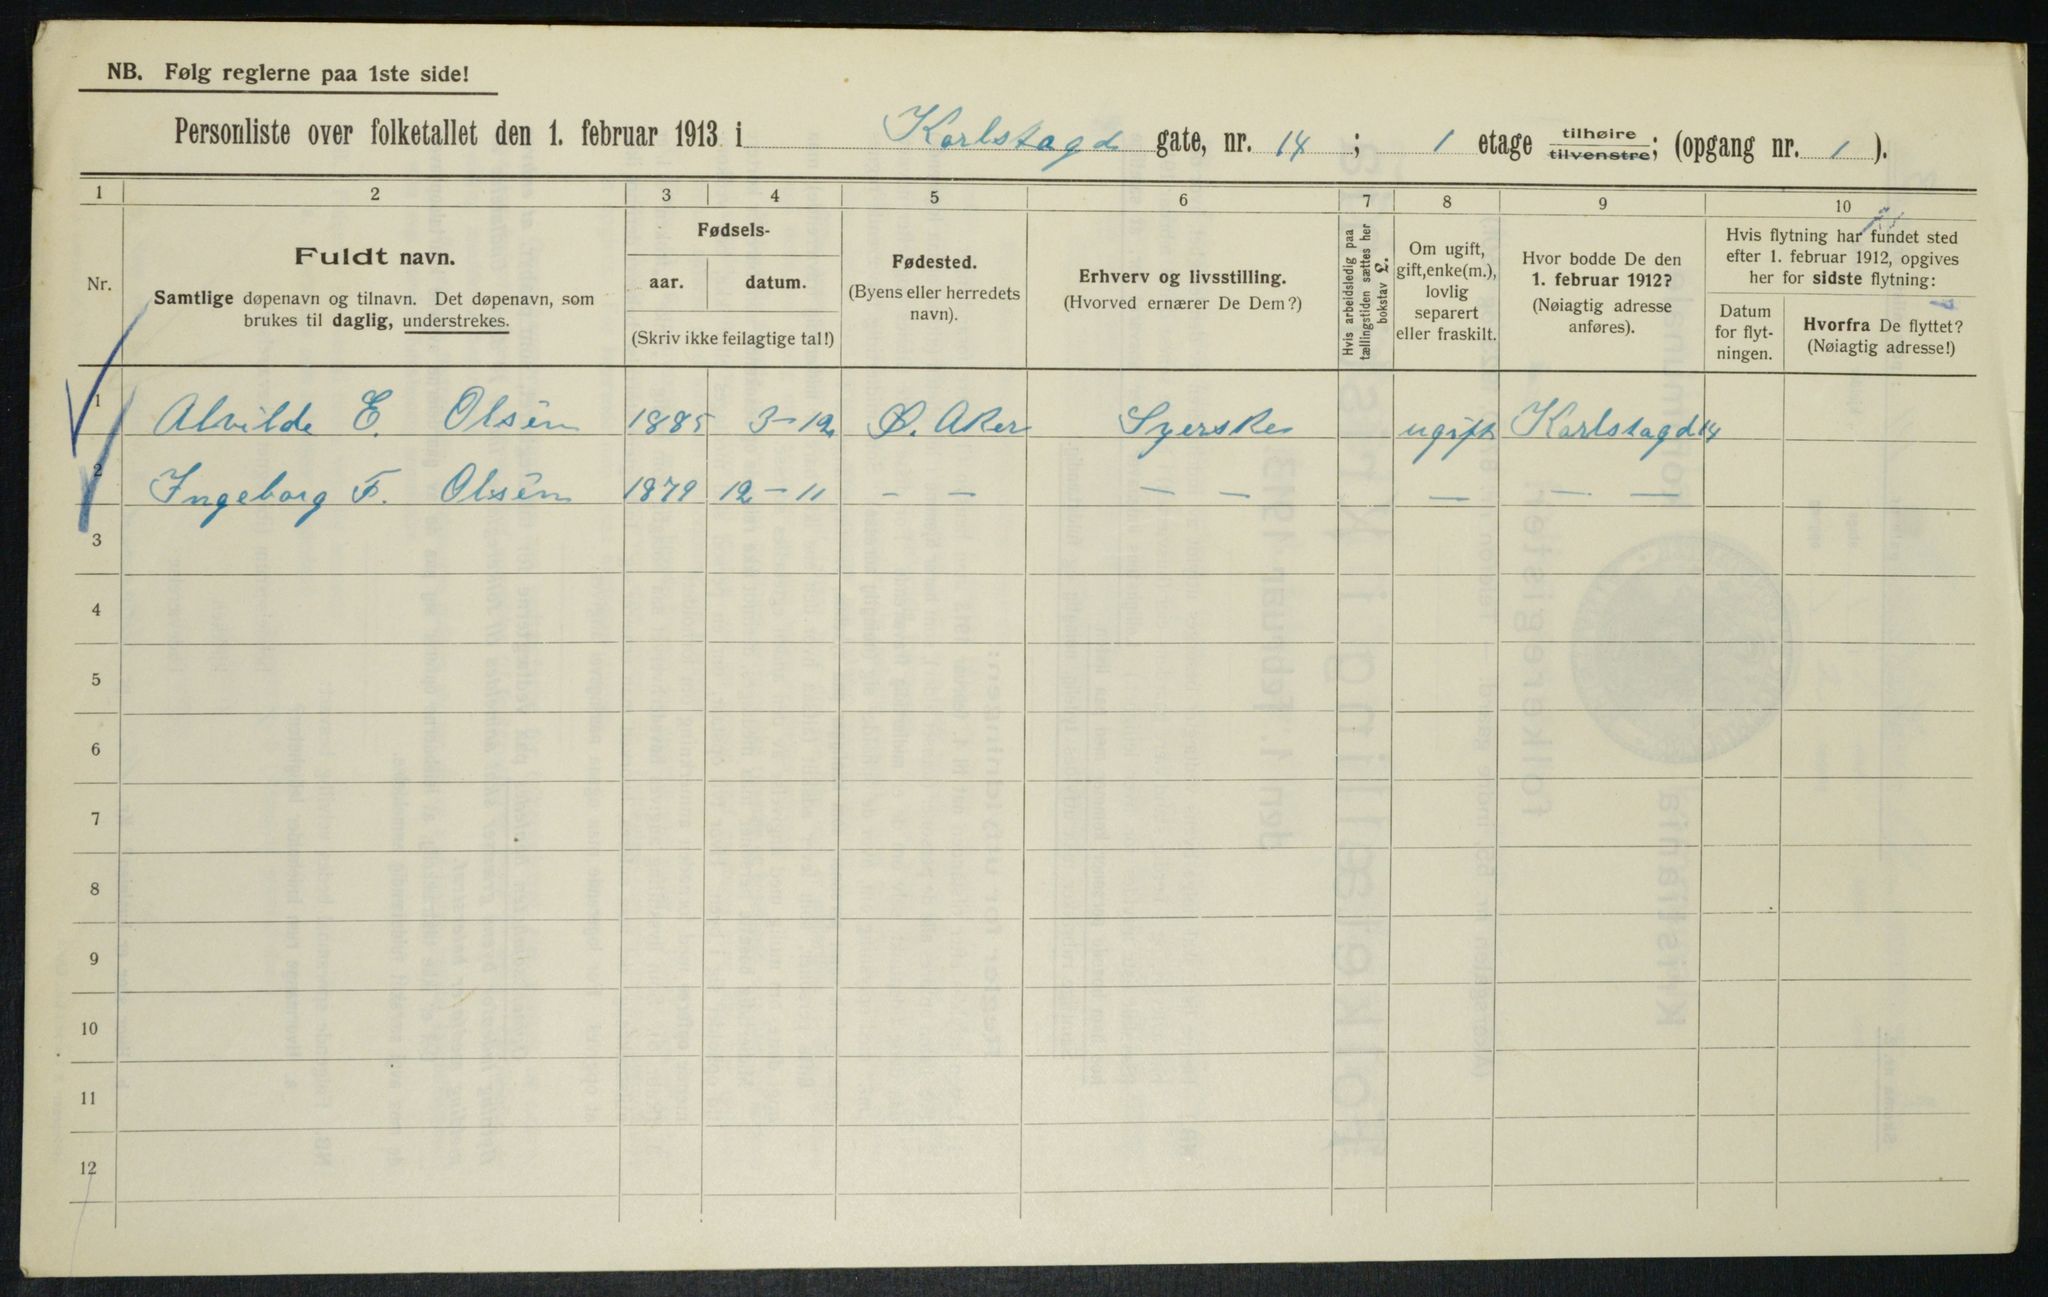 NB. Følg reglerne paa 1ste side!
Personliste over folketallet den 1. februar 1913 i Karlstagd gate, nr. 14 ; 1 etage tilhøire tilvenstre; (opgang nr. 1 ).
1 2 3 4 5 6 7 8 9 10
Nr.
Fuldt navn.
Samtlige døpenavn og tilnavn. Det døpenavn, som
brukes til daglig, understrekes.
Fødsels-
aar. datum.
(Skriv ikke feilagtige tal!)
Fødested.
(Byens eller herredets
navn).
Erhverv og livsstilling.
(Hvorved ernærer De Dem?)
Hvis arbeidsledig paa
tællingstiden sættes her
bokstav L.
Om ugift,
gift, enke(m.),
lovlig
separert
eller fraskilt.
Hvor bodde De den
1. februar 1912?
(Nøiagtig adresse
anføres).
Hvis flytning har fundet sted
efter 1. februar 1912, opgives
her for sidste flytning:
Datum
for flyt-
ningen.
Hvorfra De flyttet?
(Nøiagtig adresse!)
1 Alvilde E. Olsen 1885 3-12 Ø. Aker Syerske ugift Karlstagd 14
2 Ingeborg F. Olsen 1879 12-11 — — — — — — —
3
4
5
6
7
8
9
10
11
12